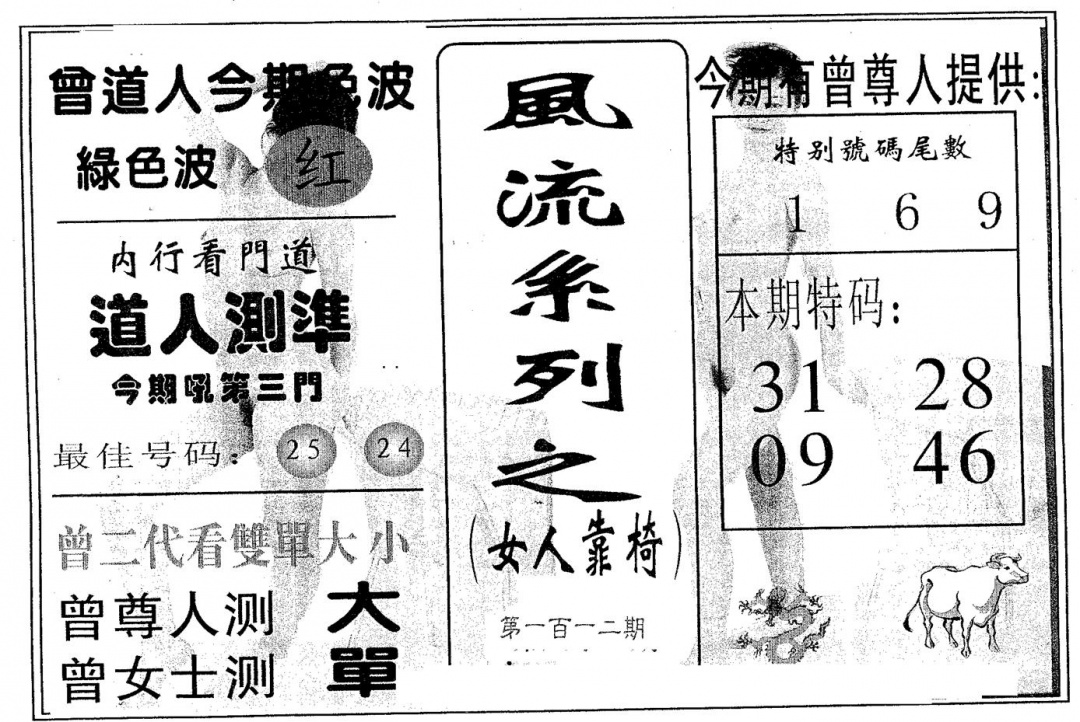 曾道人今期色波
綠色波 红
内行看門道
道人測準
今期吼第三門
最佳号码: 25 24
曾二代看雙單大小
曾尊人测 大
曾女士测 單
風流系列之
(女人靠椅)
第一百一二期
今期有曾尊人提供:
特别號碼尾數
1 6 9
本期特码:
31 28
09 46